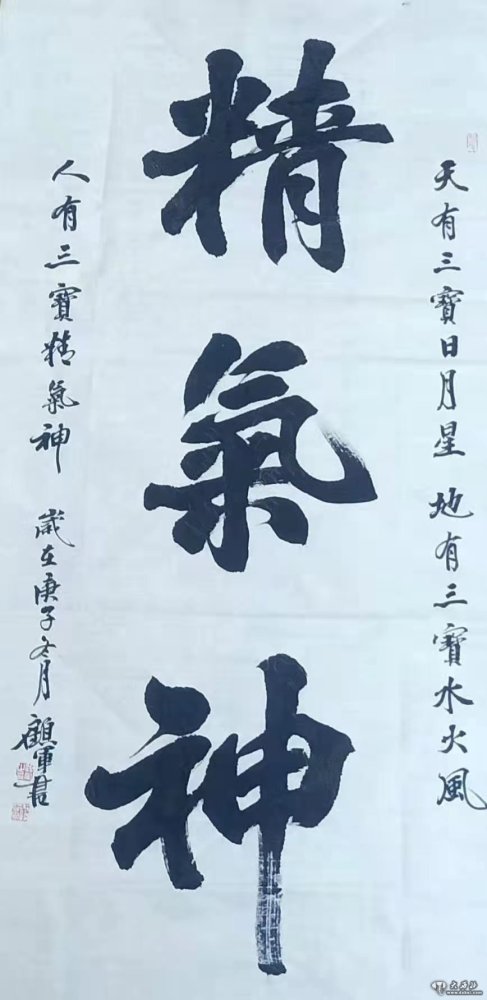 天有三寶日月星 地有三寶水火風
精氣神
人有三寶精氣神 歲在庚子冬月 顧軍書